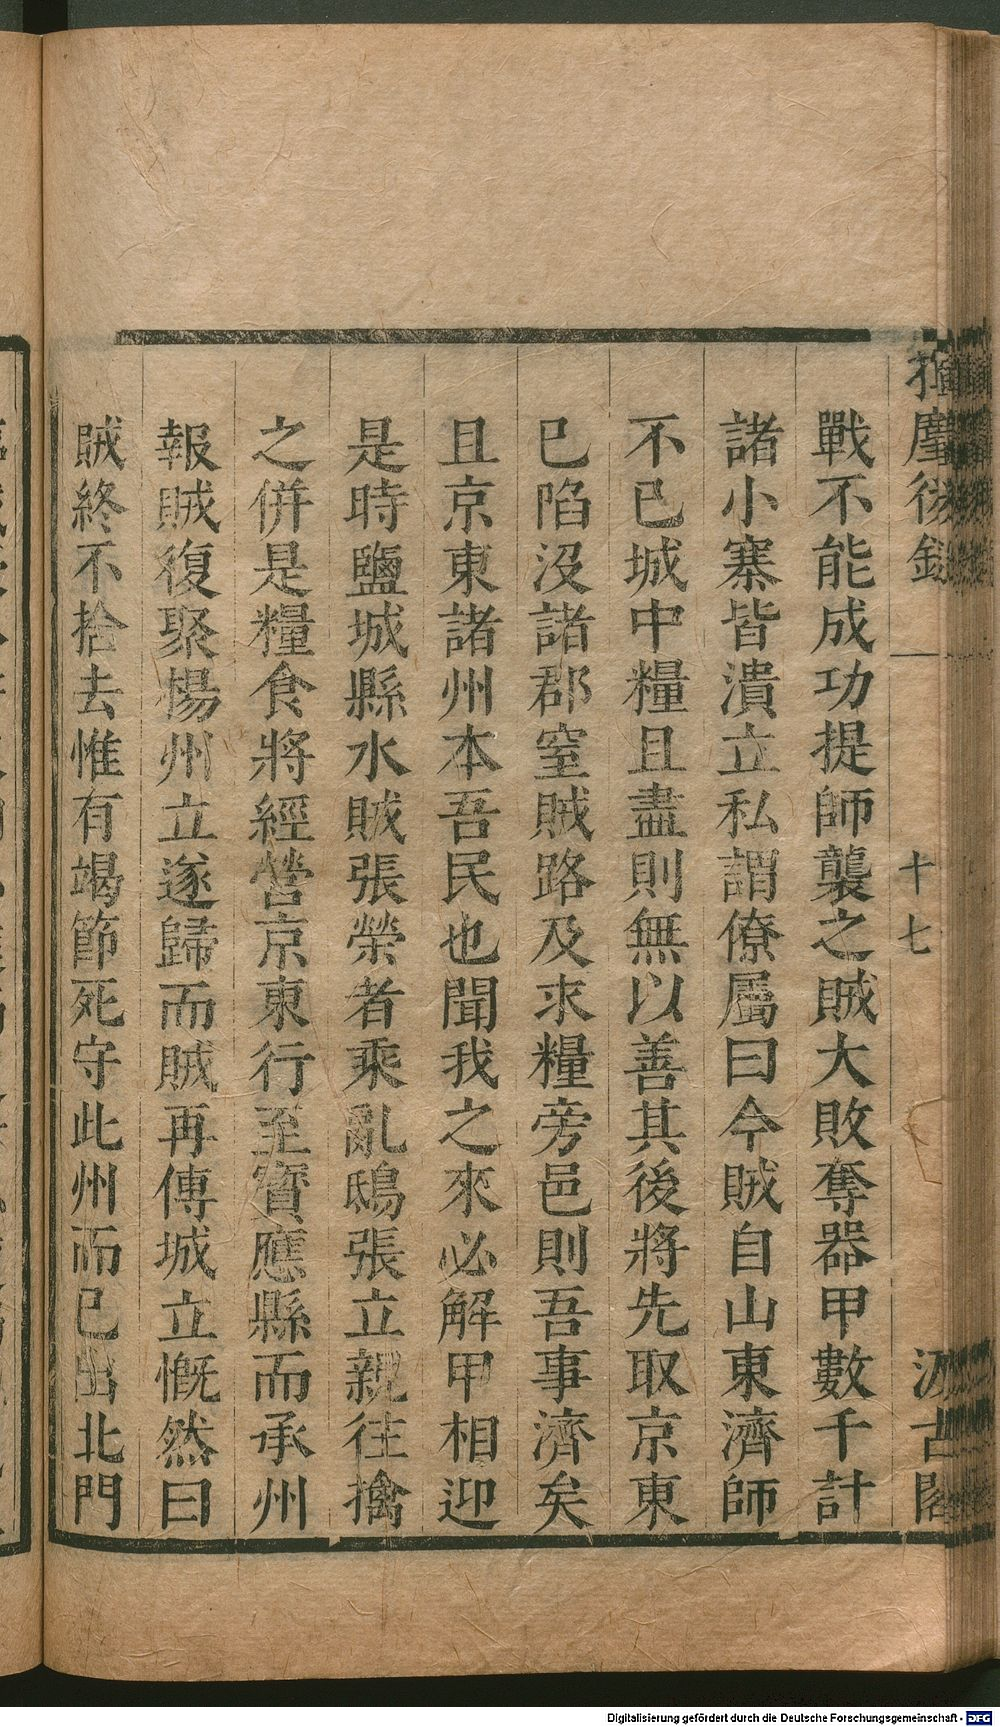 揮麈後錄
十七
汲古閣
戰不能成功提師襲之賊大敗奪器甲數千計
諸小寨皆潰立私謂僚屬曰今賊自山東濟師
不已城中糧且盡則無以善其後將先取京東
已陷沒諸郡窒賊路及求糧旁邑則吾事濟矣
且京東諸州本吾民也聞我之來必解甲相迎
是時鹽城縣水賊張榮者乘亂鴟張立親往擒
之併是糧食將經營京東行至寶應縣而承州
報賊復聚楊州立遂歸而賊再傅城立慨然曰
賊終不捨去惟有竭節死守此州而已出北門
Digitalisierung gefördert durch die Deutsche Forschungsgemeinschaft - DFG